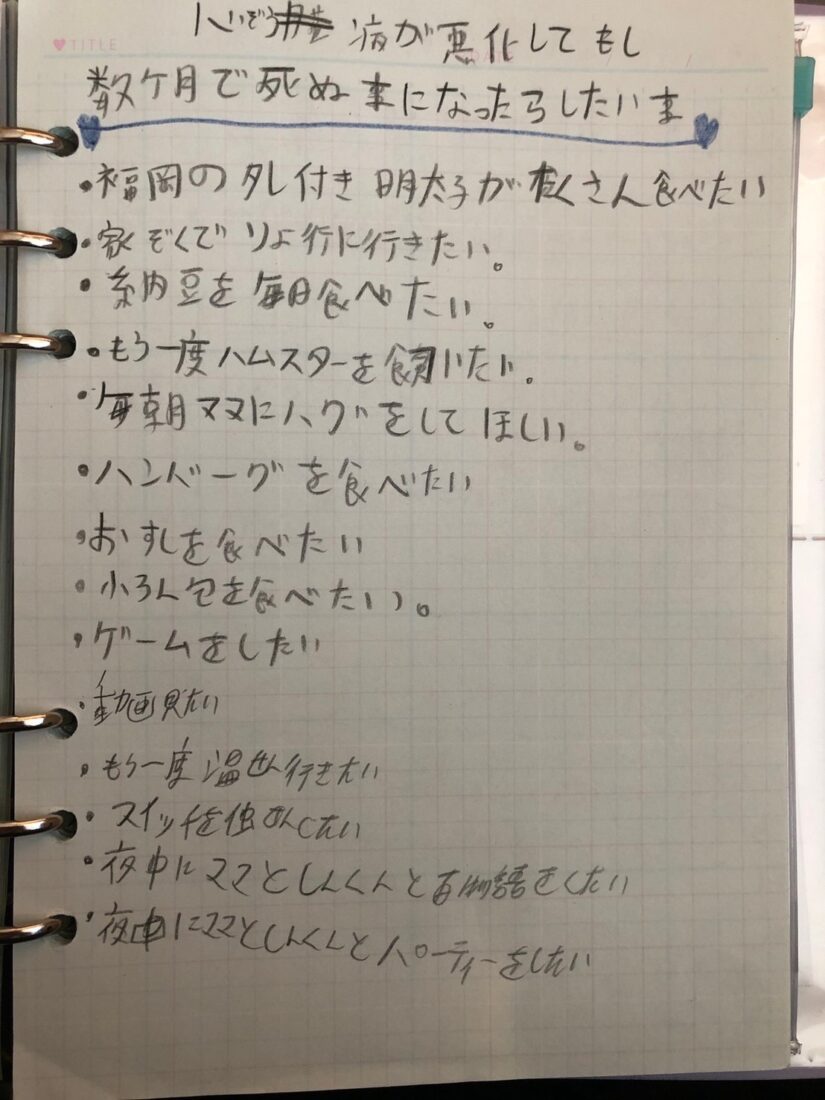 ♥TITLE
心ぞう病が悪化してもし
数ケ月で死ぬ事になったらしたい事
・福岡のタレ付き明太子がたくさん食べたい
・家ぞくでりょ行に行きたい。
・納豆を毎日食べたい。
・もう一度ハムスターを飼いたい。
・毎朝ママにハグをしてほしい。
・ハンバーグを食べたい
・おすしを食べたい
・小ろん包を食べたい。
・ゲームをしたい
・動画見たい
・もう一度温せん行きたい
・スイッチを独せんしたい
・夜中にママとしんくんと百物語をしたい
・夜中にママとしんくんとパーティーをしたい